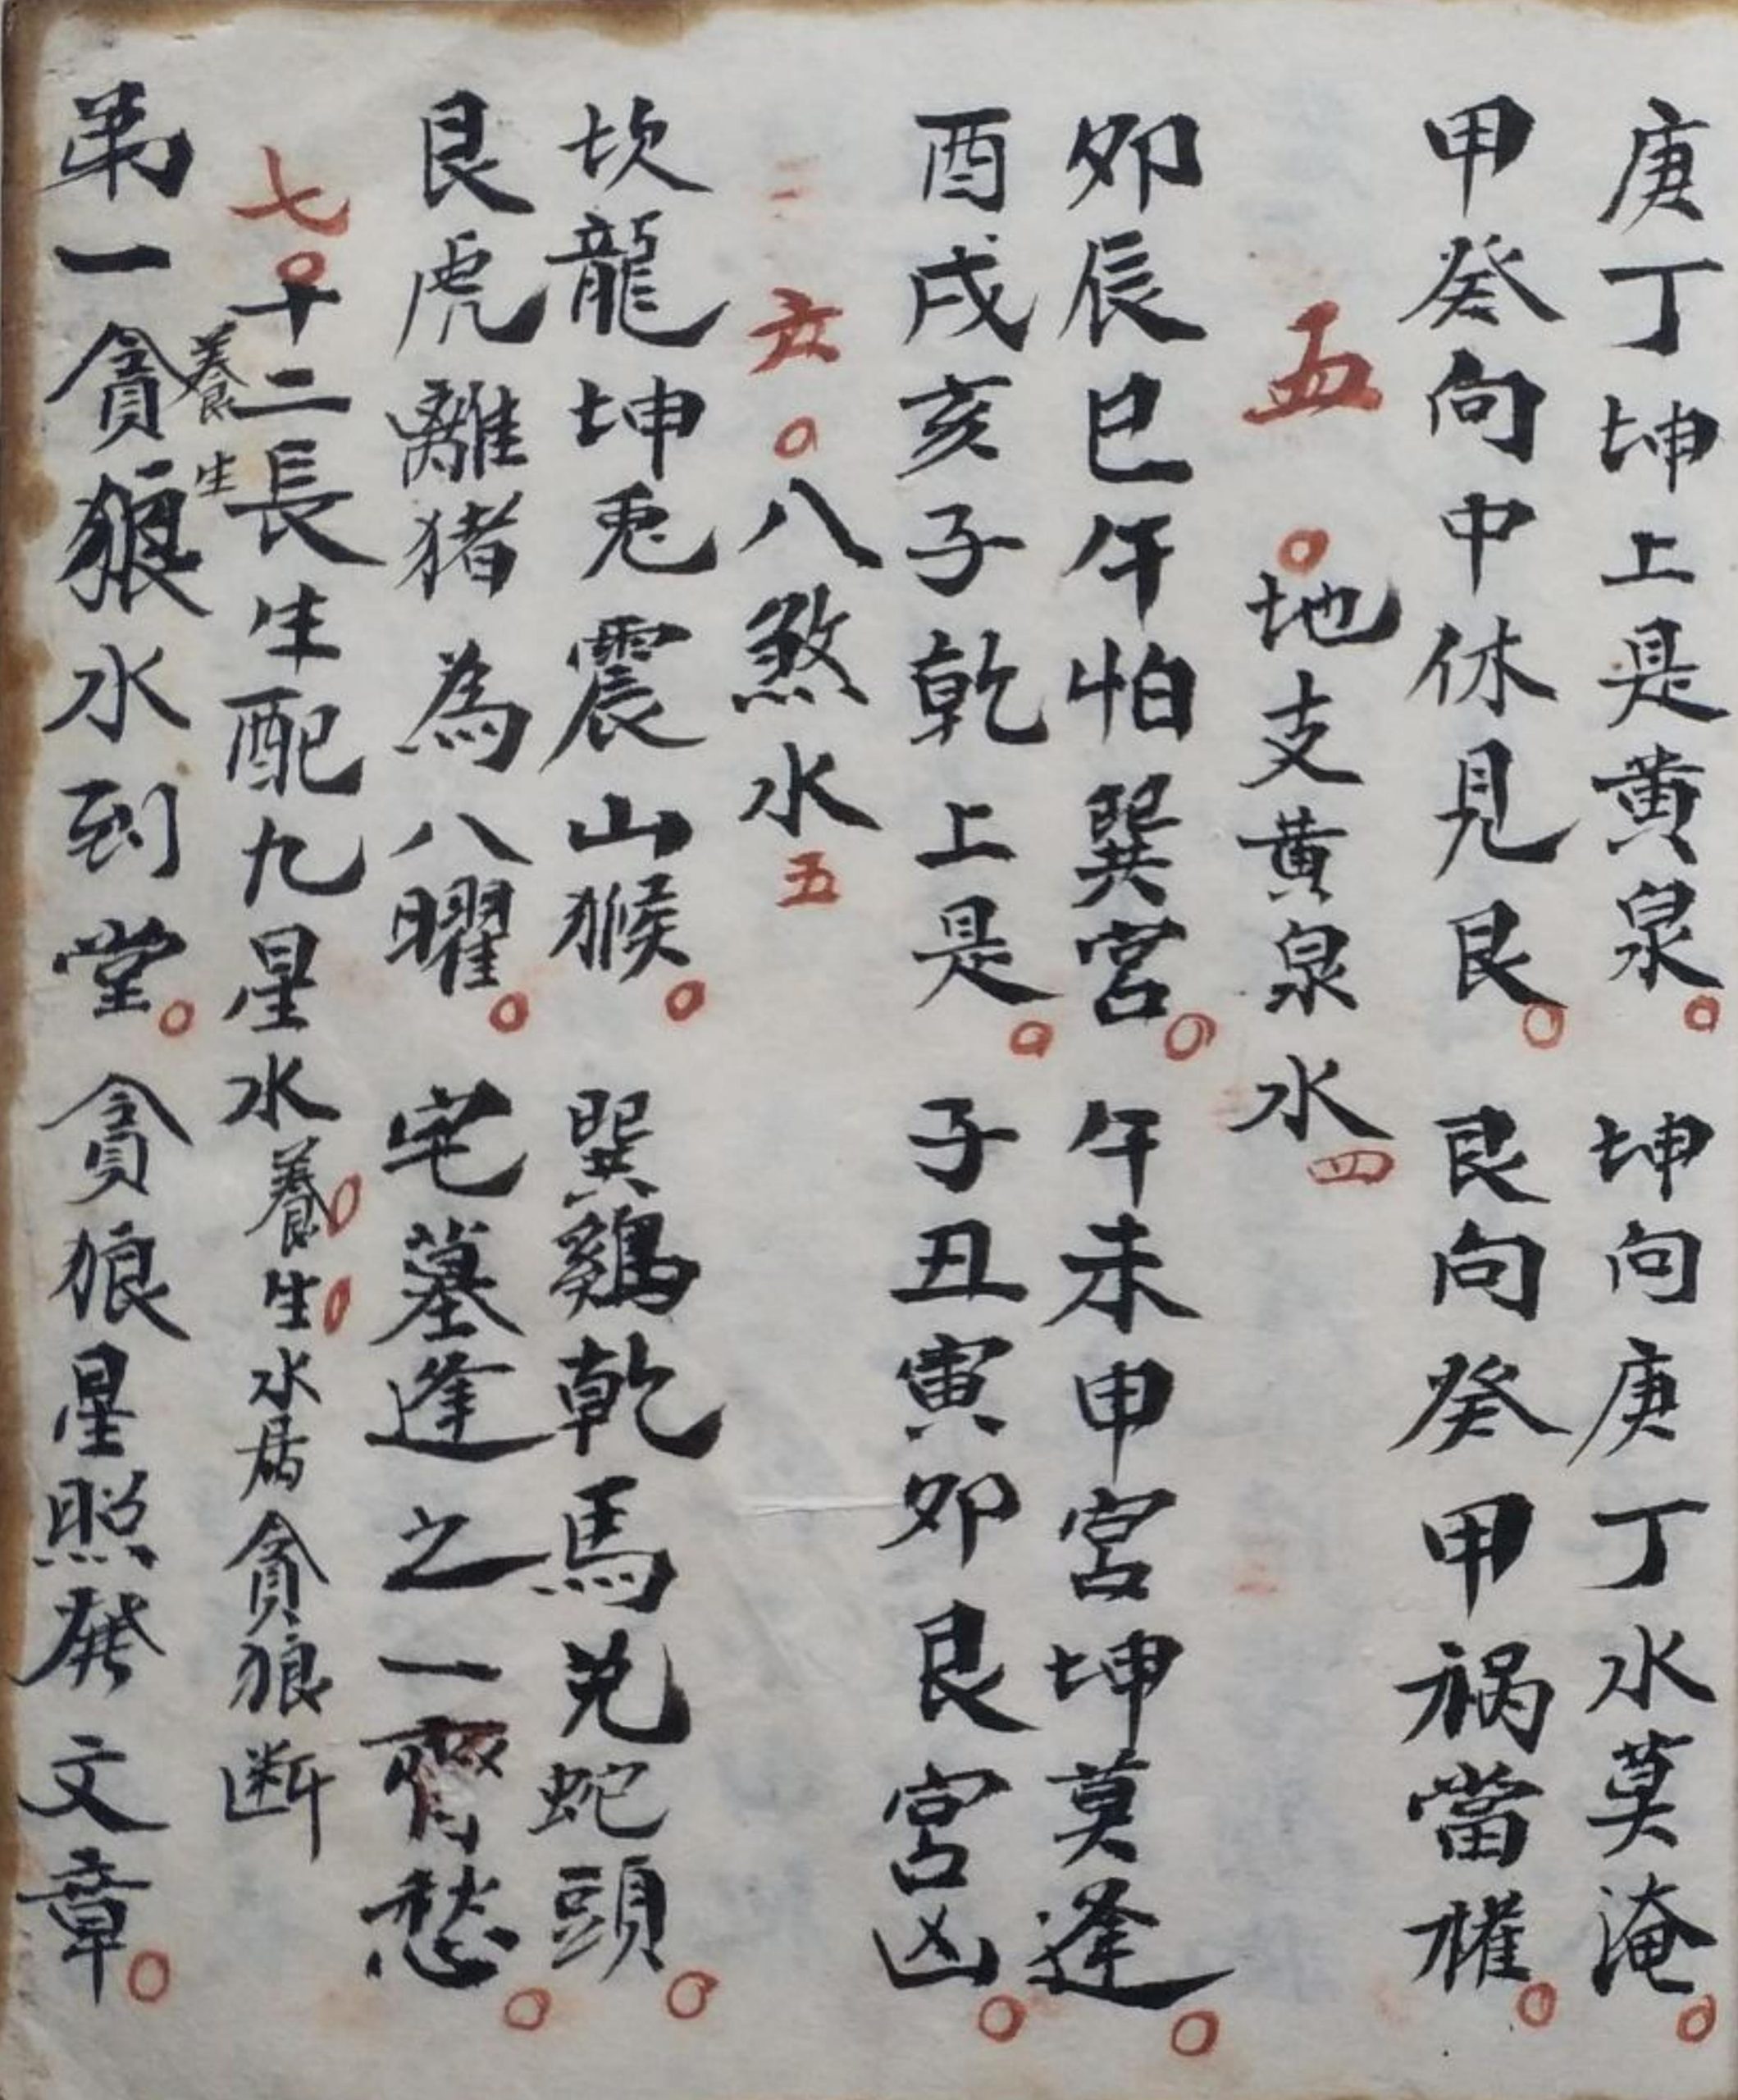 庚丁坤上是黄泉。坤向庚丁水莫淹。
甲癸向中休見艮。艮向癸甲禍當權。
五。地支黄泉水四
卯辰巳午怕巽宫。午未申宫坤莫逢。
酉戌亥子乾上是。子丑寅卯艮宫凶。
六。八煞水五
坎龍坤兎震山猴。巽鷄乾馬兑蛇頭。
艮虎離猪為八曜。宅墓逢之一齊愁。
七。十二長生配九星水養。生。水居貪狼断
養生
弟一貪狼水到堂。貪狼星照發文章。